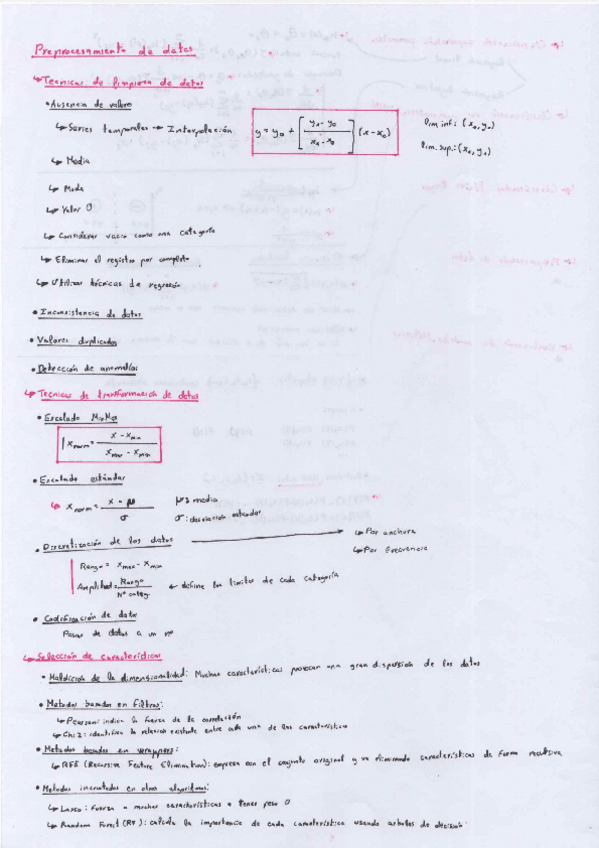 Preprocesamiento de datos
↳ Tecnicas de limpieza de datos
• Ausencia de valores
↳ Series temporales → Interpolación
y = y₀ + [ (y₁ - y₀) / (x₁ - x₀) ] (x - x₀)
Lim. inf: (x₀, y₀)
Lim. sup.: (x₁, y₁)
↳ Media
↳ Moda
↳ Valor 0
↳ Considerar vacío como una categoría
↳ Eliminar el registro por completo
↳ Utilizar técnicas de regresión
• Inconsistencia de datos
• Valores duplicados
• Detección de anomalías
↳ Tecnicas de transformación de datos
• Escalado MinMax
x norm = (x - x min) / (x max - x min)
• Escalado estándar
↳ x norm = (x - μ) / σ
μ: media
σ: desviación estandar
• Discretización de los datos → ↳ Por anchura
↳ Por frecuencia
Rango = x max - x min
Amplitud = Rango / Nº categ. ← define los limites de cada categoría
• Codificación de datos
Pasar de datos a un nº
↳ Selección de características
• Maldición de la dimensionalidad: Muchas características provocan una gran dispersión de los datos
• Metodos basados en filtros:
↳ Pearson: indica la fuerza de la correlación
↳ Chi 2: identifica la relacion existente entre cada una de las características
• Metodos basados en wrappers:
↳ RFE (Recursive Feature Elimination): empieza con el conjunto original y va eliminando características de forma recursiva
• Metodos incrustados en otros algoritmos:
↳ Lasso: fuerza a muchas características a tener peso 0
↳ Random Forest (RF): calcula la importancia de cada característica usando arboles de decisión